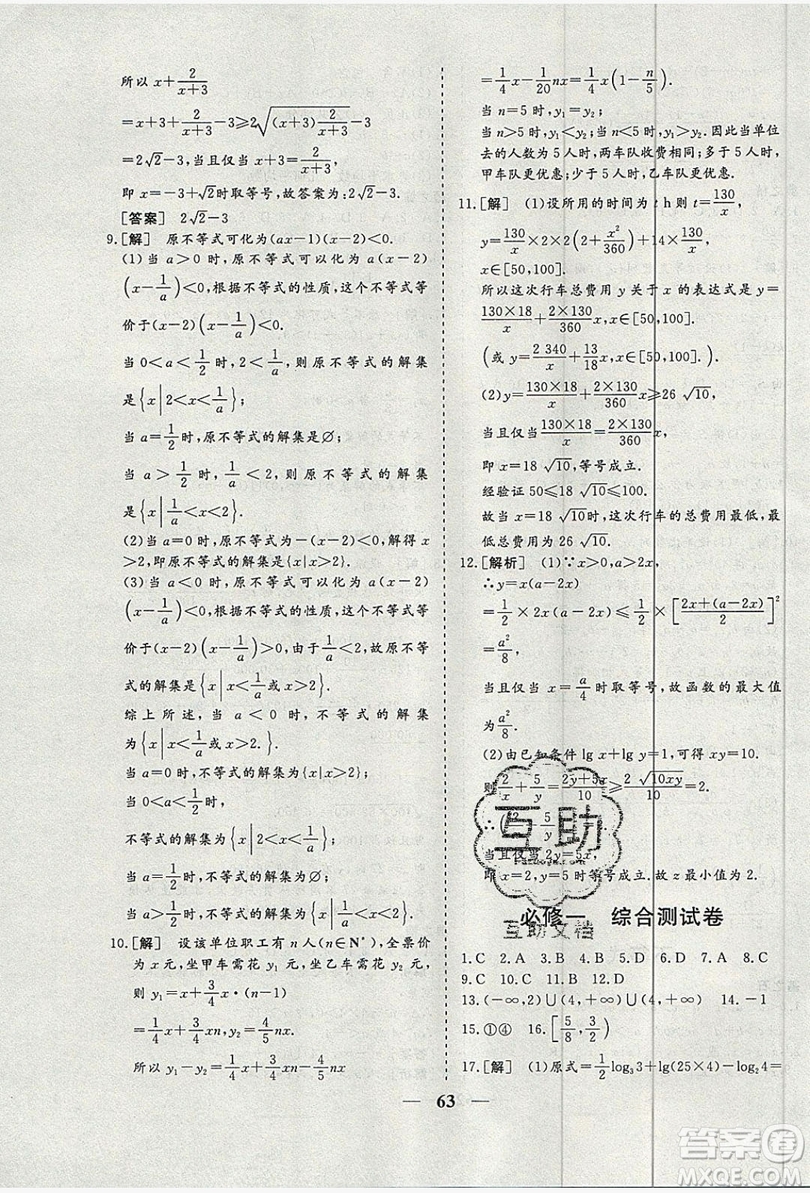 所以 x+2/(x+3)
=x+3+2/(x+3)-3≥2√((x+3)·2/(x+3))-3
=2√2-3,当且仅当 x+3=2/(x+3),
即 x=-3+√2时取等号,故答案为:2√2-3.
[答案] 2√2-3
9.[解] 原不等式可化为(ax-1)(x-2)<0.
(1)当 a>0 时,原不等式可以化为 a(x-2)
(x-1/a)<0,根据不等式的性质,这个不等式等
价于(x-2)(x-1/a)<0.
当 0<a<1/2 时,2<1/a,则原不等式的解集
是{x|2<x<1/a};
当 a=1/2时,原不等式的解集是∅;
当 a>1/2 时,1/a<2,则原不等式的解集
是{x|1/a<x<2}.
(2)当 a=0 时,原不等式为-(x-2)<0,解得 x
>2,即原不等式的解集为{x|x>2}.
(3)当 a<0 时,原不等式可以化为 a(x-2)
(x-1/a)<0,根据不等式的性质,这个不等式等
价于(x-2)(x-1/a)>0,由于1/a<2,故原不等
式的解集是{x|x<1/a或x>2}.
综上所述,当 a<0 时,不等式的解集
为{x|x<1/a或x>2.}
当 a=0 时,不等式的解集为{x|x>2};
当 0<a<1/2时,
不等式的解集为{x|2<x<1/a};
当 a=1/2时,不等式的解集为∅;
当 a>1/2时,不等式的解集为{x|1/a<x<2}.
10.[解] 设该单位职工有 n 人(n∈N*),全票价
为 x 元,坐甲车需花 y₁ 元,坐乙车需花 y₂ 元,
则 y₁=x+3/4x·(n-1)
=1/4x+3/4xn,y₂=4/5nx.
所以 y₁-y₂=1/4x+3/4xn-4/5nx
=1/4x-1/20nx=1/4x(1-n/5).
当 n=5 时,y₁=y₂;
当 n>5 时,y₁<y₂;当 n<5 时,y₁>y₂.因此当单位
去的人数为 5 人时,两车队收费相同;多于 5 人时,
甲车队更优惠;少于 5 人时,乙车队更优惠.
11.[解] (1)设所用的时间为 t h则 t=130/x,
y=130/x×2×2(2+x²/360)+14×130/x,
x∈[50,100].
所以这次行车总费用 y 关于 x 的表达式是 y=
130×18/x+2×130/360x,x∈[50,100].
(或 y=2 340/x+13/18x,x∈[50,100].)
(2)y=130×18/x+2×130/360x≥26√10,
当且仅当130×18/x=2×130/360x,
即 x=18√10,等号成立.
经验证 50≤18√10≤100.
故当 x=18√10时,这次行车的总费用最低,最
低总费用为 26√10.
12.[解析] (1)∵x>0,a>2x,
∴y=x(a-2x)
=1/2×2x(a-2x)≤1/2×[(2x+(a-2x))/2]²
=a²/8,
当且仅当 x=a/4时取等号,故函数的最大值
为a²/8.
(2)由已知条件 lg x+lg y=1,可得 xy=10.
则2/x+5/y=(2y+5x)/10≥2√(10xy)/10=2.
当且仅当 2y=5x,
即 x=2,y=5 时等号成立.故 z 最小值为 2.
必修一 综合测试卷
1.C 2.A 3.B 4.C 5.A 6.A 7.B 8.C
9.C 10.C 11.D 12.C
13.(-∞,2)∪(4,+∞)∪(4,+∞) 14.-1
15.①④ 16.[5/8,3/2)
17.[解] (1)原式=1/2log₃3+lg(25×4)-log₂4=
63
互助
互助文档
答案圈
MXQE.COM